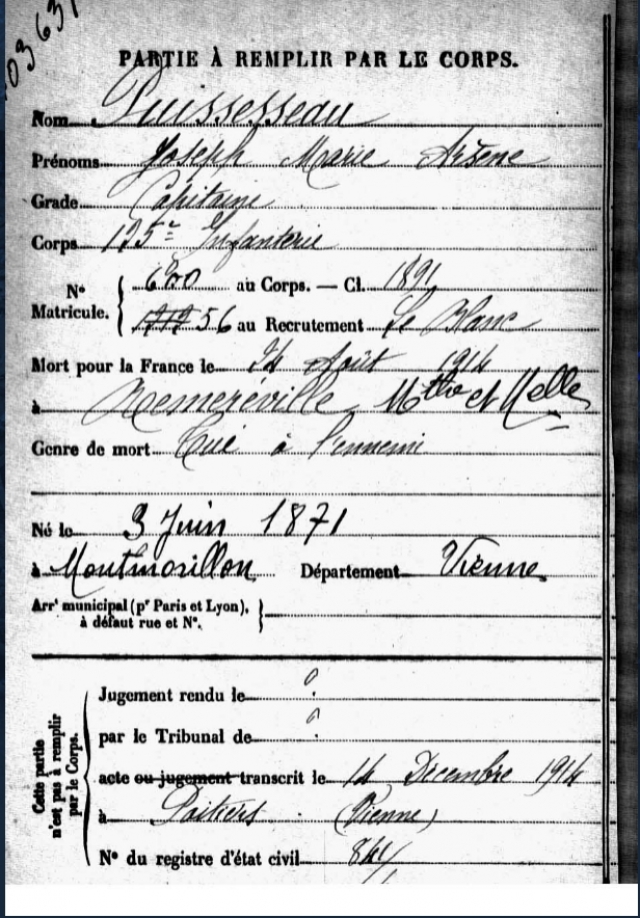 03631
PARTIE À REMPLIR PAR LE CORPS.
Nom Puissesseau
Prénoms Joseph Marie Arsène
Grade Capitaine
Corps 125e Infanterie
Nº Matricule. 600 au Corps. — Cl. 1891
56 au Recrutement Le Blanc
Mort pour la France le 24 Août 1914
à Remeréville Mthe et Melle
Genre de mort Tué à l'ennemi
Né le 3 Juin 1871
à Montmorillon Département Vienne
Arrt municipal (pr Paris et Lyon), à défaut rue et Nº.
Cette partie n'est pas à remplir par le Corps.
Jugement rendu le ?
par le Tribunal de ?
acte ou jugement transcrit le 14 Décembre 1914
à Poitiers (Vienne)
Nº du registre d'état civil